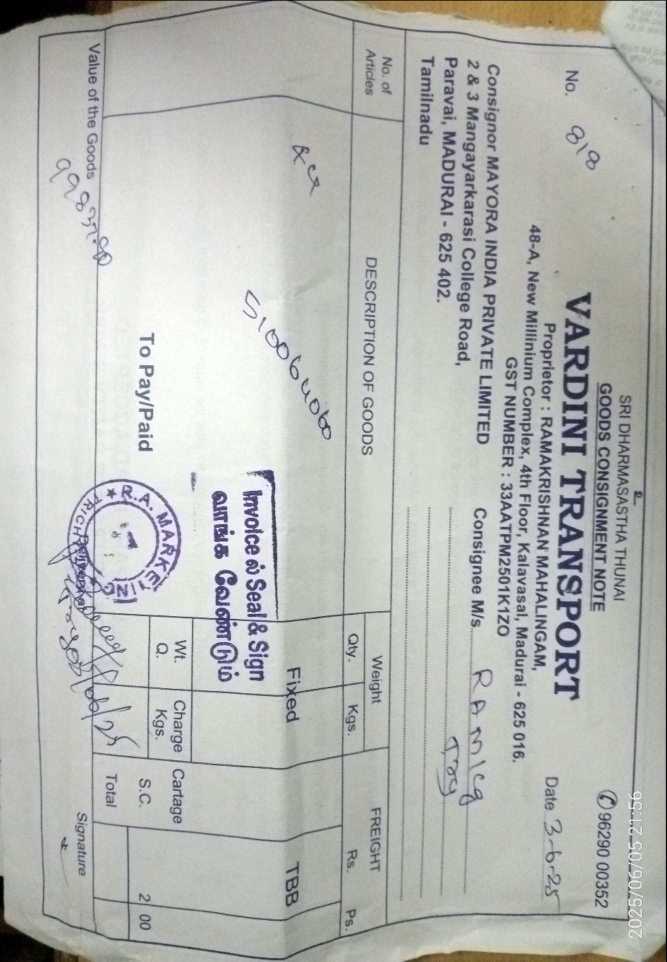 2025/06/05 21:56
SRI DHARMASASTHA THUNAI
GOODS CONSIGNMENT NOTE
✆ 96290 00352
VARDINI TRANSPORT
No. 818
Date 3-6-25
Proprietor : RAMAKRISHNAN MAHALINGAM,
48-A, New Millinium Complex, 4th Floor, Kalavasal, Madurai - 625 016.
GST NUMBER : 33AATPM2501K1ZO
Consignor MAYORA INDIA PRIVATE LIMITED
2 & 3 Mangayarkarasi College Road,
Paravai, MADURAI - 625 402.
Tamilnadu
Consignee M/s.
No. of Articles
DESCRIPTION OF GOODS
Weight
Qty. Kgs.
FREIGHT
Rs. Ps.
Fixed
TBB
510064060
Invoice ல் Seal & Sign
வாங்க வேண்டும்
To Pay/Paid
R.A. MARKETING
Wt. Q.
Charge Kgs.
Cartage
S.C.
2 00
Total
Value of the Goods
Signature